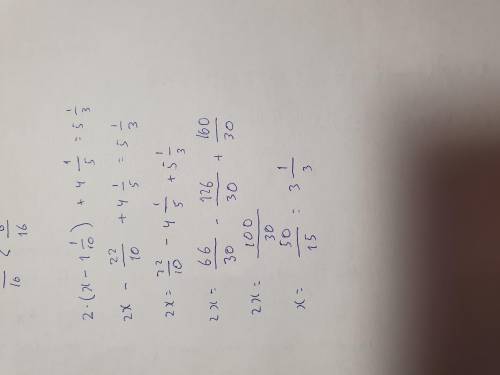 16 < 6/16
2·(x - 1 1/10) + 4 1/5 = 5 1/3
2x - 22/10 + 4 1/5 = 5 1/3
2x = 22/10 - 4 1/5 + 5 1/3
2x = 66/30 - 126/30 + 160/30
2x = 100/30
x = 50/15 = 3 1/3